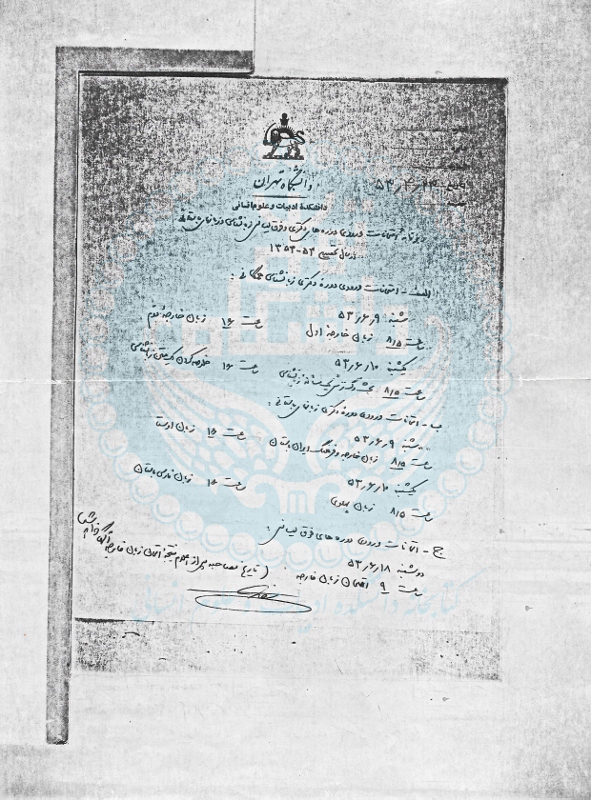 دانشگاه تهران
دانشکدهٔ ادبیات و علوم انسانی
تاریخ ۵۳٫۴٫۲۳
برنامه امتحانات ورودی دوره های دکتری و فوق لیسانس زبانشناسی و زبانهای باستانی
در سال تحصیلی ۵۴-۱۳۵۳
الف - امتحانات ورودی دوره دکتری زبانشناسی همگانی :
شنبه ۵۳٫۶٫۹
ساعت ۸/۵ زبان خارجهٔ اول ساعت ۱۶ زبان خارجهٔ دوم
یکشنبه ۵۳٫۶٫۱۰
ساعت ۸/۵ زبانشناسی ساعت ۱۶ خلاصه کردن یک متن زبانشناسی
ب - امتحانات ورودی دوره دکتری زبانهای باستانی :
شنبه ۵۳٫۶٫۹
ساعت ۸/۵ زبان خارجه و فرهنگ ایران باستان ساعت ۱۵ زبان اوستا
یکشنبه ۵۳٫۶٫۱۰
ساعت ۸/۵ زبان پهلوی ساعت ۱۶ زبان فارسی باستان
ج - امتحانات ورودی دوره های فوق لیسانس :
دوشنبه ۵۳٫۶٫۱۸
ساعت ۹ امتحان زبان خارجه (تاریخ مصاحبه پس از اعلام نتیجهٔ امتحان زبان خارجه
کتابخانه دانشکده ادبیات و علوم انسانی